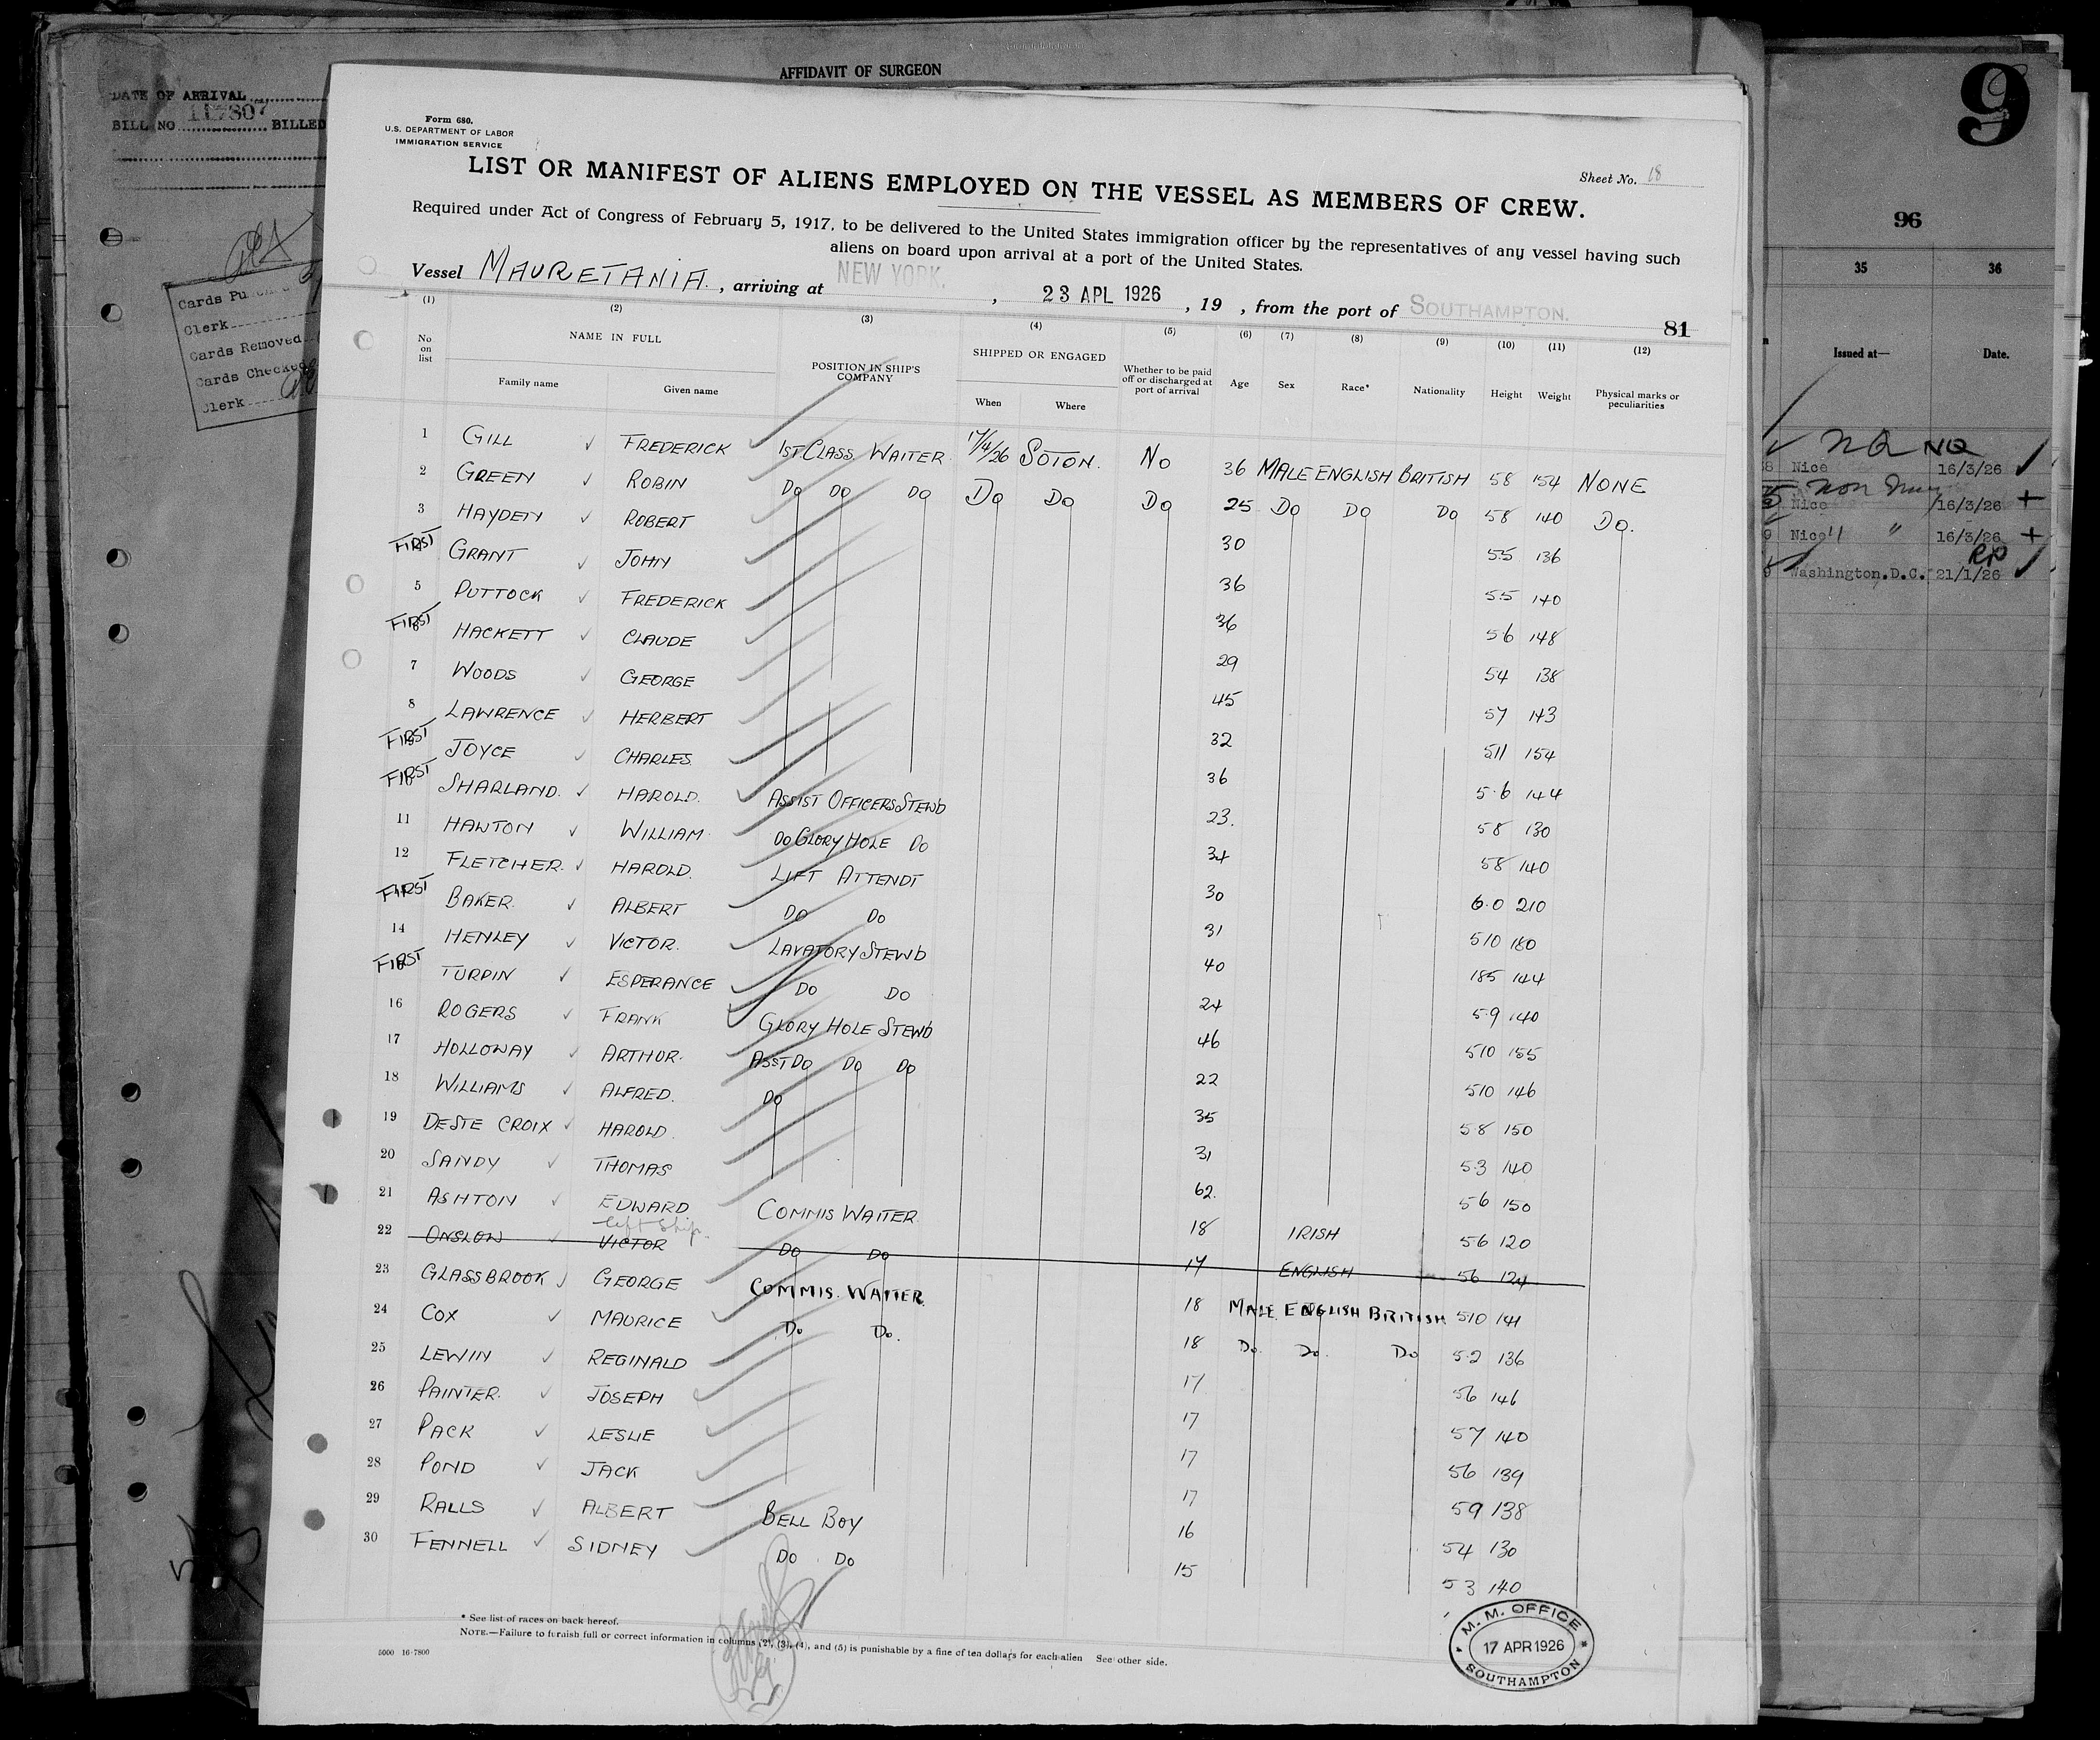 AFFIDAVIT OF SURGEON
DATE OF ARRIVAL
BILL NO 117807 BILLED
Cards Pu
Clerk
Cards Removed
Cards Checked
Clerk
Form 680.
U.S. DEPARTMENT OF LABOR
IMMIGRATION SERVICE
Sheet No. 18
LIST OR MANIFEST OF ALIENS EMPLOYED ON THE VESSEL AS MEMBERS OF CREW.
Required under Act of Congress of February 5, 1917, to be delivered to the United States immigration officer by the representatives of any vessel having such
aliens on board upon arrival at a port of the United States.
Vessel MAURETANIA, arriving at NEW YORK. , 23 APL 1926 , 19 , from the port of SOUTHAMPTON.
81
(1) (2) (3) (4) (5) (6) (7) (8) (9) (10) (11) (12)
No on list NAME IN FULL POSITION IN SHIP'S COMPANY SHIPPED OR ENGAGED Whether to be paid off or discharged at port of arrival Age Sex Race* Nationality Height Weight Physical marks or peculiarities
Family name Given name When Where
1 GILL FREDERICK 1ST CLASS WAITER 17/4/26 SOTON. NO 36 MALE ENGLISH BRITISH 58 154 NONE
2 GREEN ROBIN DO DO DO DO DO DO 25 DO DO DO 58 140 DO.
3 HAYDEN ROBERT 30 55 136
FIRST GRANT JOHN 36 55 140
5 PUTTOCK FREDERICK 36 56 148
FIRST HACKETT CLAUDE 29 54 138
7 WOODS GEORGE 45 57 143
8 LAWRENCE HERBERT 32 511 154
FIRST JOYCE CHARLES 36 5.6 144
FIRST SHARLAND. HAROLD. ASSIST OFFICERS STEWD 23. 58 130
11 HAWTON WILLIAM DO GLORY HOLE DO 34 58 140
12 FLETCHER. HAROLD. LIFT ATTENDT 30 6.0 210
FIRST BAKER. ALBERT DO DO 31 510 180
14 HENLEY VICTOR. LAVATORY STEWD 40 185 144
FIRST TURPIN ESPERANCE DO DO 24 5.9 140
16 ROGERS FRANK GLORY HOLE STEWD 46 510 155
17 HOLLOWAY ARTHUR. ASST DO DO DO 22 510 146
18 WILLIAMS ALFRED. DO 35 5.8 150
19 DESTE CROIX HAROLD. 31 5.3 140
20 SANDY THOMAS 62. 56 150
21 ASHTON EDWARD COMMIS WAITER 18 IRISH 56 120
left ship.
22 ONSLOW VICTOR DO DO 17 ENGLISH 56 124
23 GLASSBROOK GEORGE COMMIS. WAITER. 18 MALE ENGLISH BRITISH 510 141
24 COX MAURICE DO DO. 18 DO. DO. DO 5.2 136
25 LEWIN REGINALD 17 56 146
26 PAINTER. JOSEPH 17 57 140
27 PACK LESLIE 17 56 139
28 POND JACK 17 59 138
29 RALLS ALBERT BELL BOY 16 54 130
30 FENNELL SIDNEY DO DO 15 53 140
* See list of races on back hereof.
NOTE.—Failure to furnish full or correct information in columns (2), (3), (4), and (5) is punishable by a fine of ten dollars for each alien See other side.
5000 16-7800
M. M. OFFICE
17 APR 1926
SOUTHAMPTON
9
96
35 36
Issued at— Date.
NQ NQ
Nice 16/3/26
non
Nice 16/3/26 +
Nice " " 16/3/26 +
Washington.D.C. 21/1/26